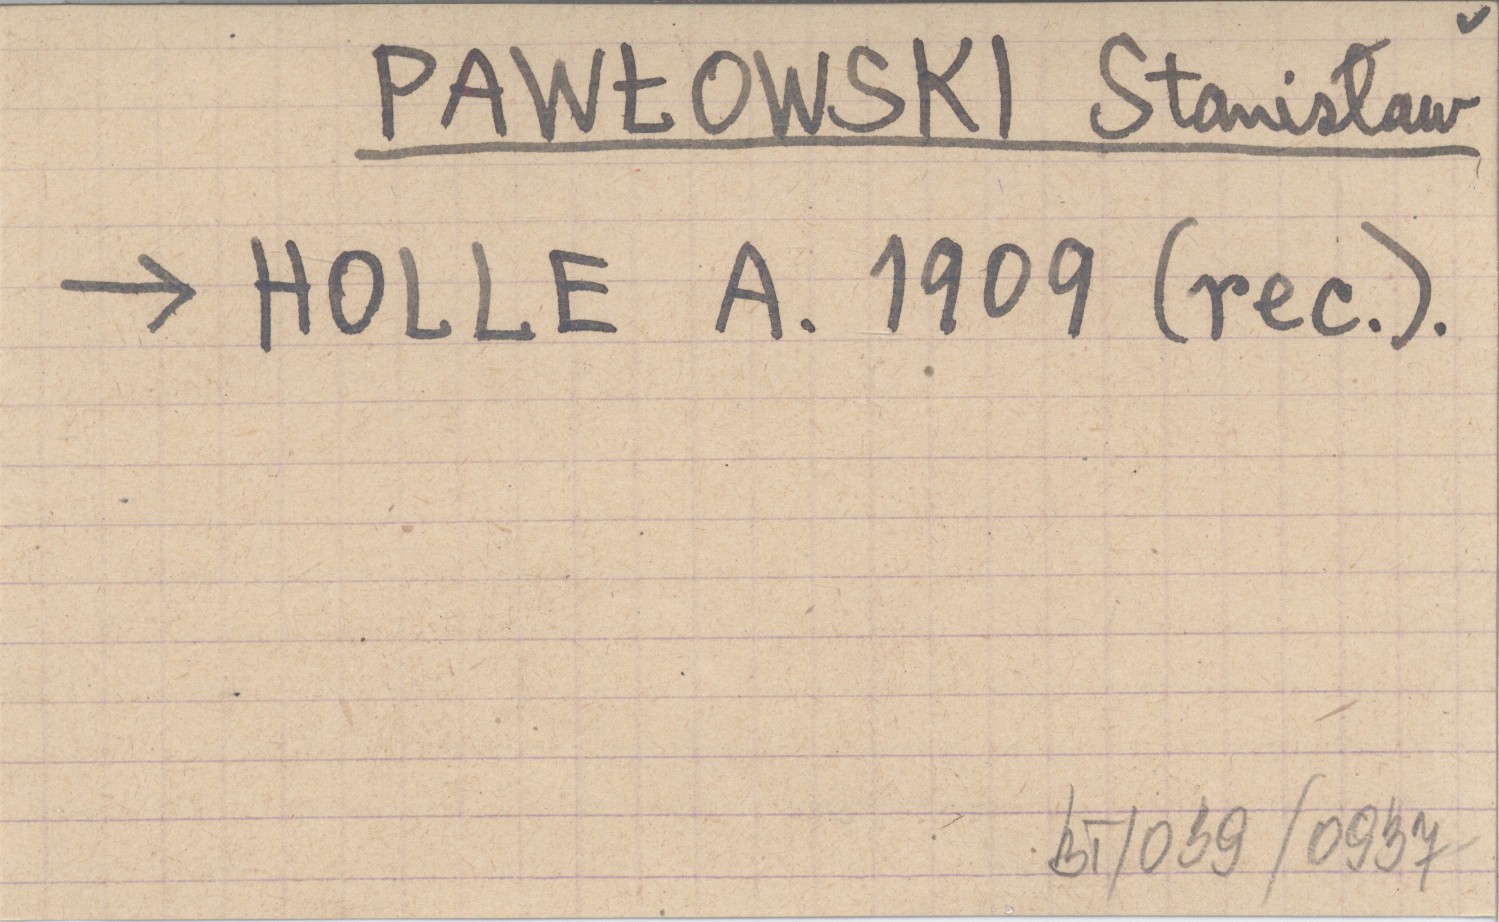 PAWŁOWSKI Stanisław
→ HOLLE A. 1909 (rec.).
BT/039/0937